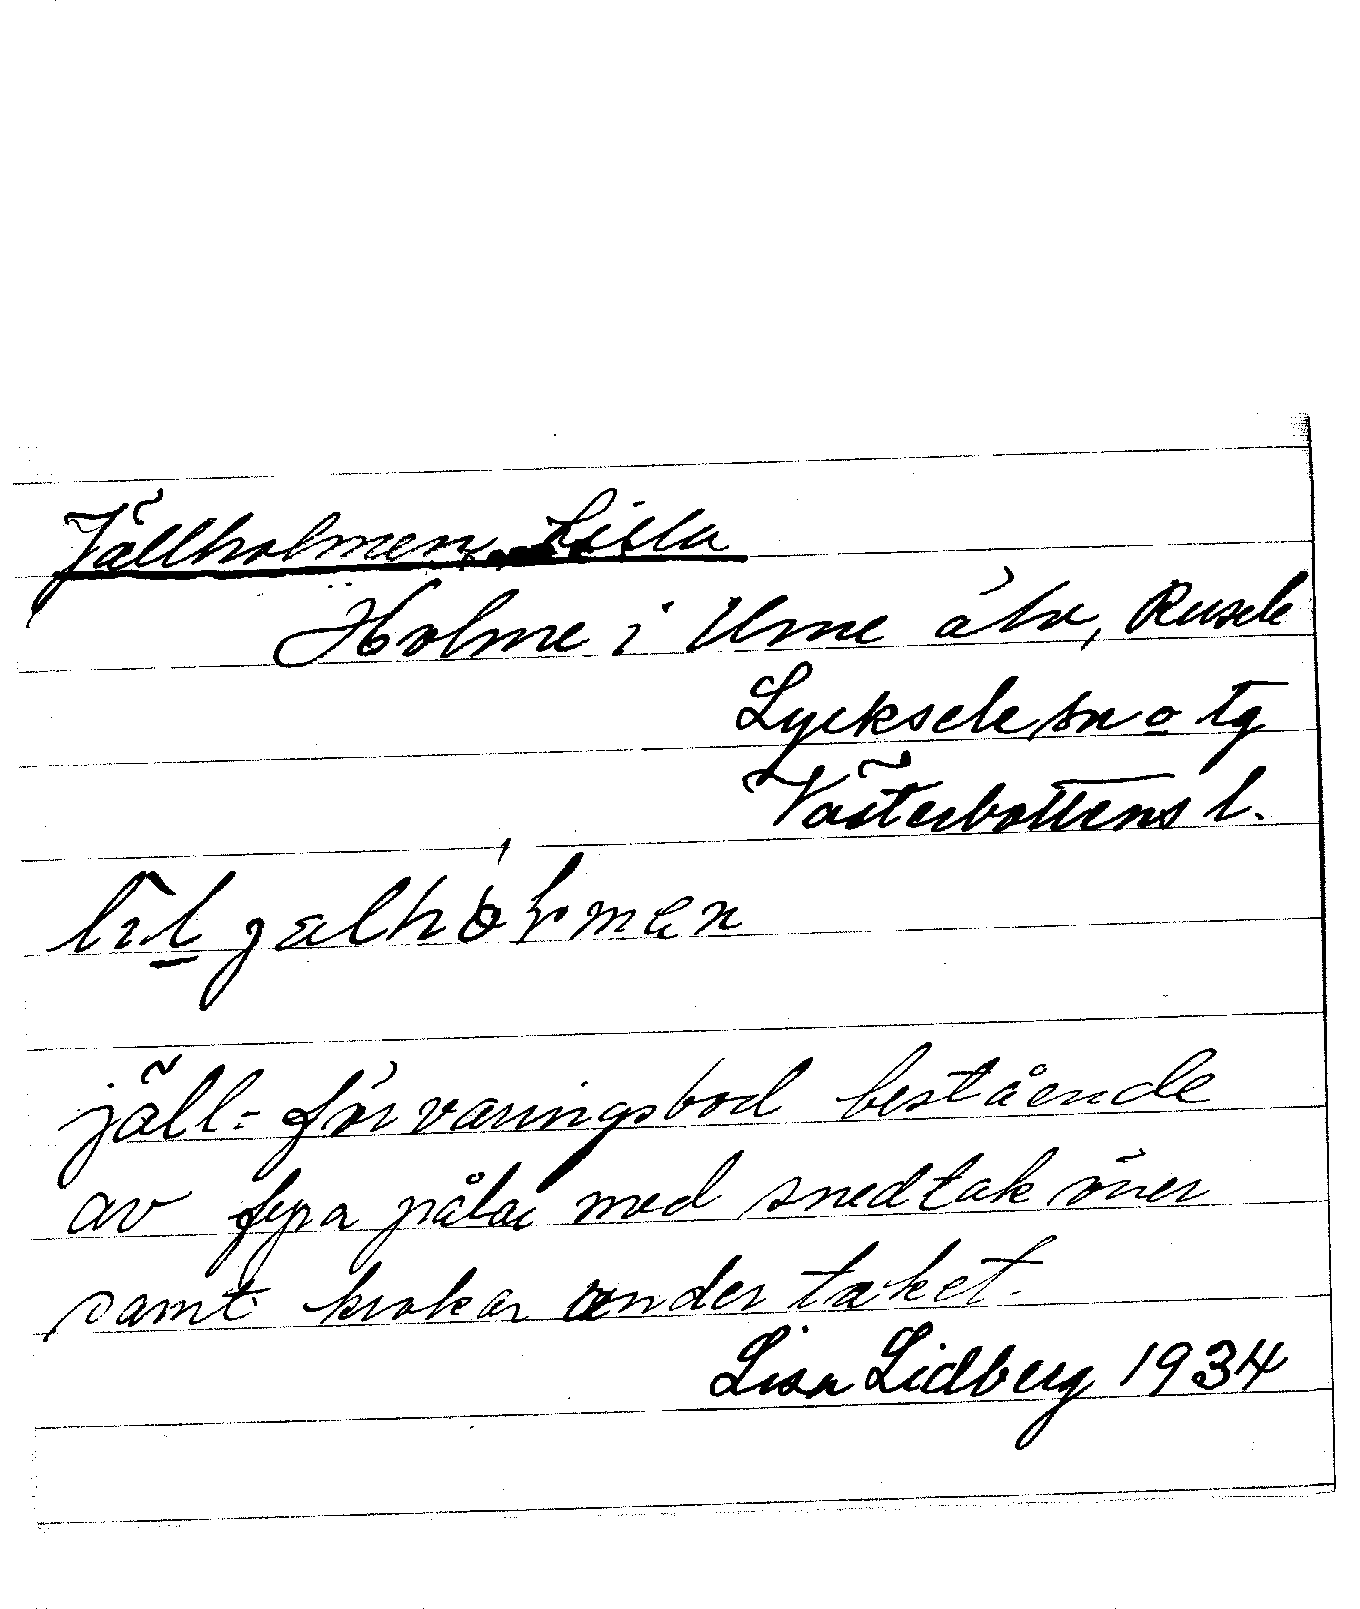 Jällholmen, Lilla
Holme i Ume älv, Rusele
Lycksele sn o tg
Västerbottens l.
jäll = förvaringsbod bestående
av fyra pålar med snedtak över
samt krokar under taket.
Lisa Lidberg 1934